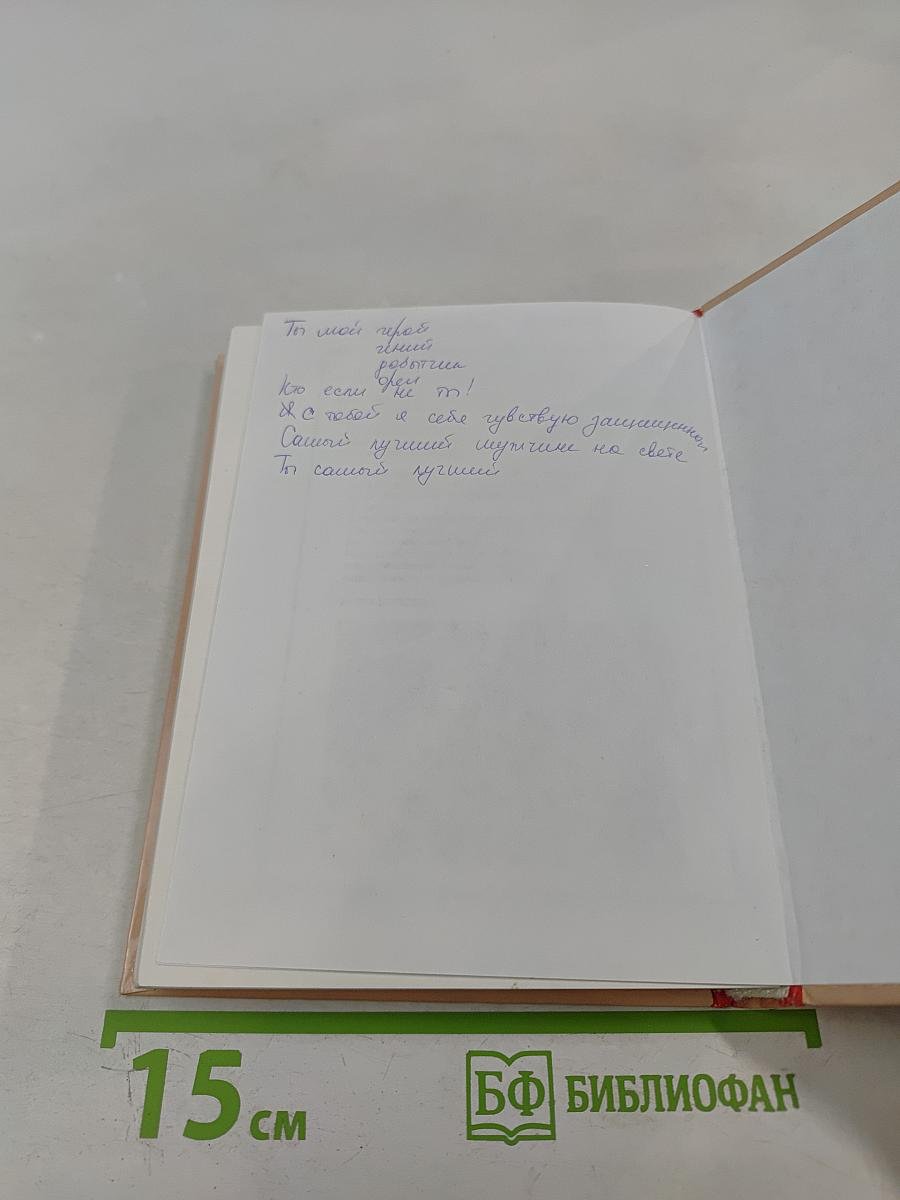 Ты мой герой
гений
добытчик
орел
Кто если не ты!
С тобой я себя чувствую защищенной
Самый лучший мужчина на свете
Ты самый лучший
15 см
БФ БИБЛИОФАН